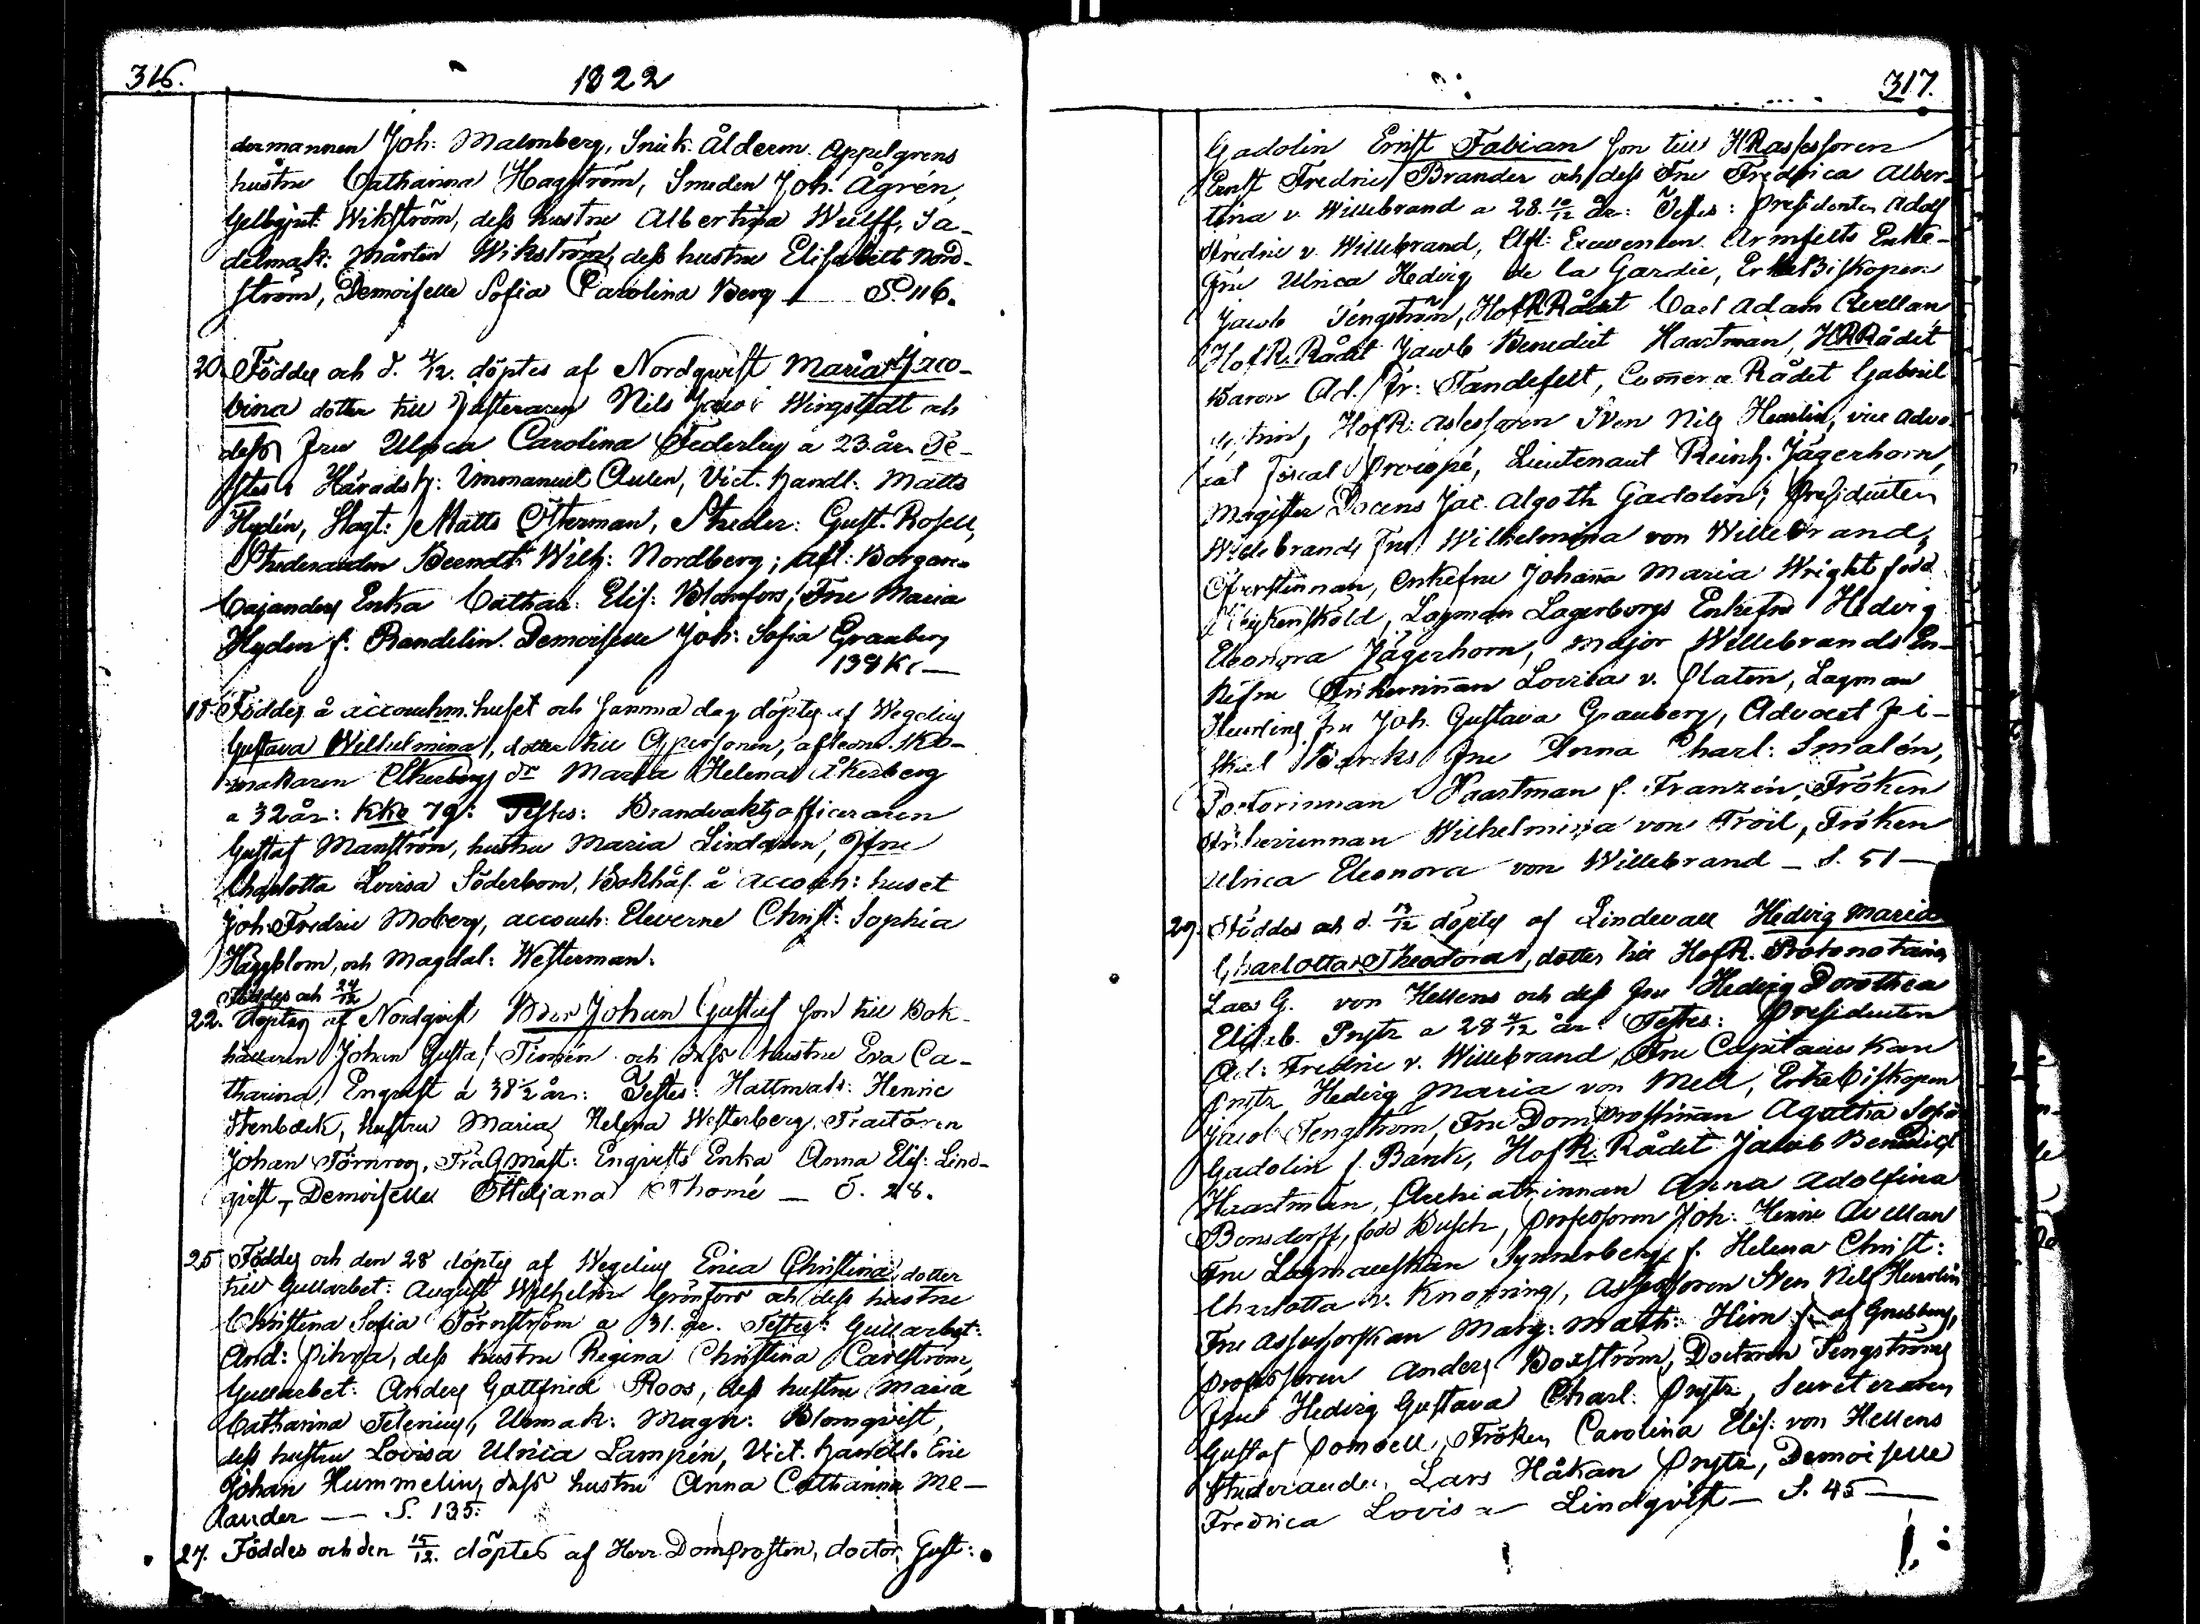 316.
1822
dermannen Joh: Malmberg, Snick. Ålderm. Appelgrens
hustru Catharina Hagström, Smeden Joh. Ågrén,
Gelbgjut: Wikström, dess hustru Albertina Wulff, Sa-
delmak: Mårten Wikström, dess hustru Elisabett Nord-
ström, Demoiselle Sofia Carolina Berg — S. 116.
20. Föddes och d. 4/12. döptes af Nordqvist Maria Jaco-
bina dotter till Nils Jacob Wingstedt och
dess Fru Ulrica Carolina Federley a 23 år. Te-
stes: Häradsh: Immanuel Aulen, Vict. handl: Matts
Hydén, Slagt: Matts Österman, Studer: Gust. Rosell,
Studeranden Berndt Wilh: Nordberg; Afl: Borgaren
Cajanders Enka Cathar: Elis: Blomfors, Fru Maria
Hyden f. Randelin. Demoiselle Joh: Sofia Granberg
138 Kr —
18. Föddes å accouchm. huset och samma dag döptes af Wegelius
Gustava Wilhelmina, dotter till Qpersonen, afledne Sko-
makaren Åkerbergs dr Maria Helena Åkerberg
a 32 år: KKB 79: Testes: Brandvaktsofficeraren
Gustaf Manström, hustru Maria Lindgren, Jfru
Charlotta Lovisa Söderbom, Bokhål. å accouch: huset
Joh. Fredric Moberg, accouch: Eleverne Christ: Sophia
Häggblom, och Magdal: Westerman.
Föddes och 24/12
22. döptes af Nordqvist Johan Gustaf son till Bok-
hållaren Johan Gustaf Timmén och dess hustru Eva Ca-
tharina Engvist á 38 1/2 år: Testes: Hattmak: Henric
Stenbäck, hustru Maria Helena Westerberg, Tractören
Johan Törnroos, Engvists Enka Anna Elis: Lind-
qvist, Demoiselle Ottiliana Thomé — S. 28.
25 Föddes och den 28 döptes af Wegelius Erica Christina, dotter
till Gullarbet: August Wilhelm Grönfors och dess hustru
Christina Sofia Törnström a 31. år. Testes: Gullarbet:
And: Pihra, dess hustru Regina Christina Carlström,
Gullarbet: Anders Gottfried Roos, dess hustru Maria
Catharina Telenius, Urmak: Magn: Blomqvist,
dess hustru Lovisa Ulrica Lampén, Vict. handl. Eric
Johan Hummelin, dess hustru Anna Catharina Me-
lander — S. 135.
27. Föddes och den 15/12. döptes af Herr Domprosten, doctor Gust:
317.
Gadolin Ernst Fabian son till HRassessoren
Ernst Fredric Brander och dess Fru Fredrica Alber-
tina v. Willebrand a 28 10/12 år: Testes: Presidenten Adolf
Fredric v. Willebrand, Afl: Armfelts Enke-
fru Ulrica Hedvig de la Gardie, ErkeBiskopen
Jacob Tengström, HofRRådet Carl Adam Avellan
HofR. Rådet Jacob Benedict Haartman, HRRådet
Baron Ad. Fr: Tandefelt, Commerce Rådet Gabriel
HofR: assessoren Sven Nils Heurlin, vice Advo-
cat Fiscal Procopé, Lieutenant Reinh. Jägerhorn,
Magister Docens Jac. Algoth Gadolin; Presidenten
Willebrands Fru Wilhelmina von Willebrand,
Öfverstinnan, Enkefru Johanna Maria Wright född
Lagman Lagerborgs Enkefru Hedvig
Eleonora Jägerhorn, Major Willebrands En-
kefru Friherrinnan Lovisa v. Platen, Lagman
Heurlins Fru Joh. Gustava Granberg, Advocat Fi-
skal Barcks Fru Anna Charl: Smalén,
Doctorinnan Haartman f. Franzén, Fröken
Friherrinnan Wilhelmina von Troil, Fröken
Ulrica Eleonora von Willebrand — S. 51 —
29. Föddes och d. 13/12 döptes af Lindevall Hedvig Maria
Charlotta Theodora, dotter till HofR. Protonotarien
Lars G. von Hellens och dess Fru Hedvig Dorothea
Elisab. Prytz a 28 4/12 år: Testes: Presidenten
Ad: Fredric v. Willebrand, Fru Capitainskan
Prytz Hedvig Maria von Mell, ErkeBiskopen
Jacob Tengström, Fru Domprostinnan Agatha Sofia
Gadolin f. Bånk, HofR. Rådet Jakob Benedict
Haartman, Archiatrinnan Anna Adolfina
Bonsdorff, född Busch, Professoren Joh: Henric Avellan
Fru Lagmanskan Synnerberg f. Helena Christ:
Charlotta v. Knorring, Assessoren Sven Nils Heurlin
Fru Assessorskan Marg: Math: Hirn f. af Grubbens,
Professoren Anders Boxström, Doctoren Tengströms
Fru Hedvig Gustava Charl: Prytz, Secreteraren
Gustaf Pomoell, Fröken Carolina Elis: von Hellens
Studerande: Lars Håkan Prytz, Demoiselle
Fredrica Lovisa Lindqvist — S. 45 —